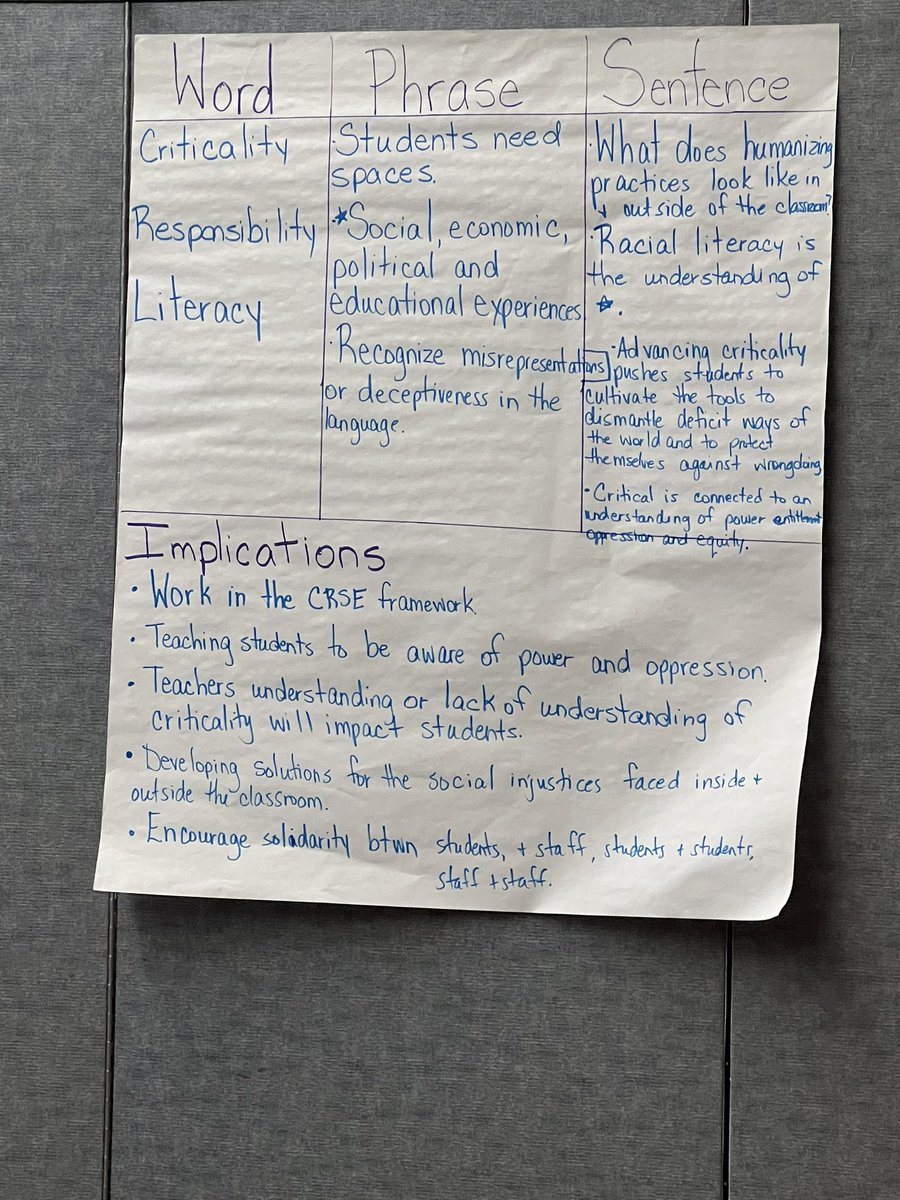 Word
Criticality
Responsibility
Literacy
Phrase
·Students need
spaces.
*Social, economic,
political and
educational experiences
·Recognize misrepresentations
or deceptiveness in the
language.
Sentence
·What does humanizing
practices look like in
+ outside of the classroom?
·Racial literacy is
the understanding of
☆.
·Advancing criticality
pushes students to
cultivate the tools to
dismantle deficit ways of
the world and to protect
themselves against wrongdoing
·Critical is connected to an
understanding of power
oppression and equity.
Implications
· Work in the CRSE framework.
· Teaching students to be aware of power and oppression.
· Teachers understanding or lack of understanding of
criticality will impact students.
· Developing solutions for the social injustices faced inside +
outside the classroom.
· Encourage solidarity btwn students, + staff, students + students,
staff + staff.